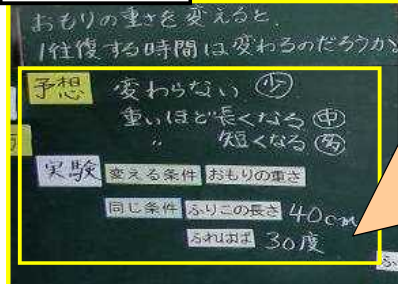 おもりの重さを変えると、
1往復する時間は変わるのだろうか。
予想 変わらない 少
重いほど長くなる 中
〃 短くなる 多
実験 変える条件 おもりの重さ
同じ条件 ふりこの長さ 40cm
ふれはば 30度
ふ